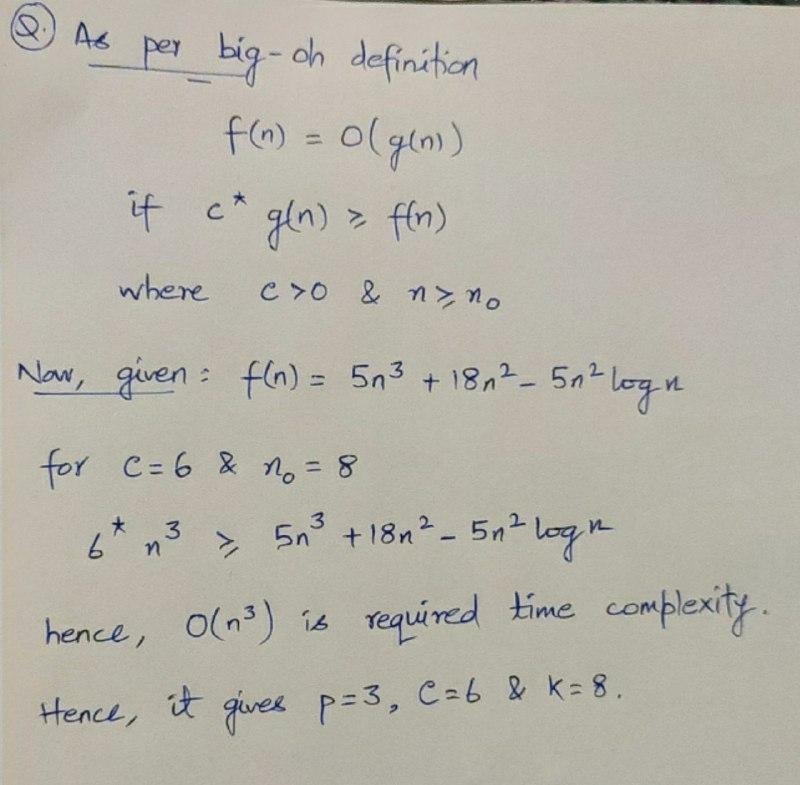 Q. As per big-oh definition
f(n) = O(g(n))
if c* g(n) ≥ f(n)
where c>0 & n≥n₀
Now, given: f(n) = 5n³ + 18n² - 5n² log n
for C=6 & n₀ = 8
6* n³ ≥ 5n³ + 18n² - 5n² log n
hence, O(n³) is required time complexity.
Hence, it gives p=3, C=6 & K=8.